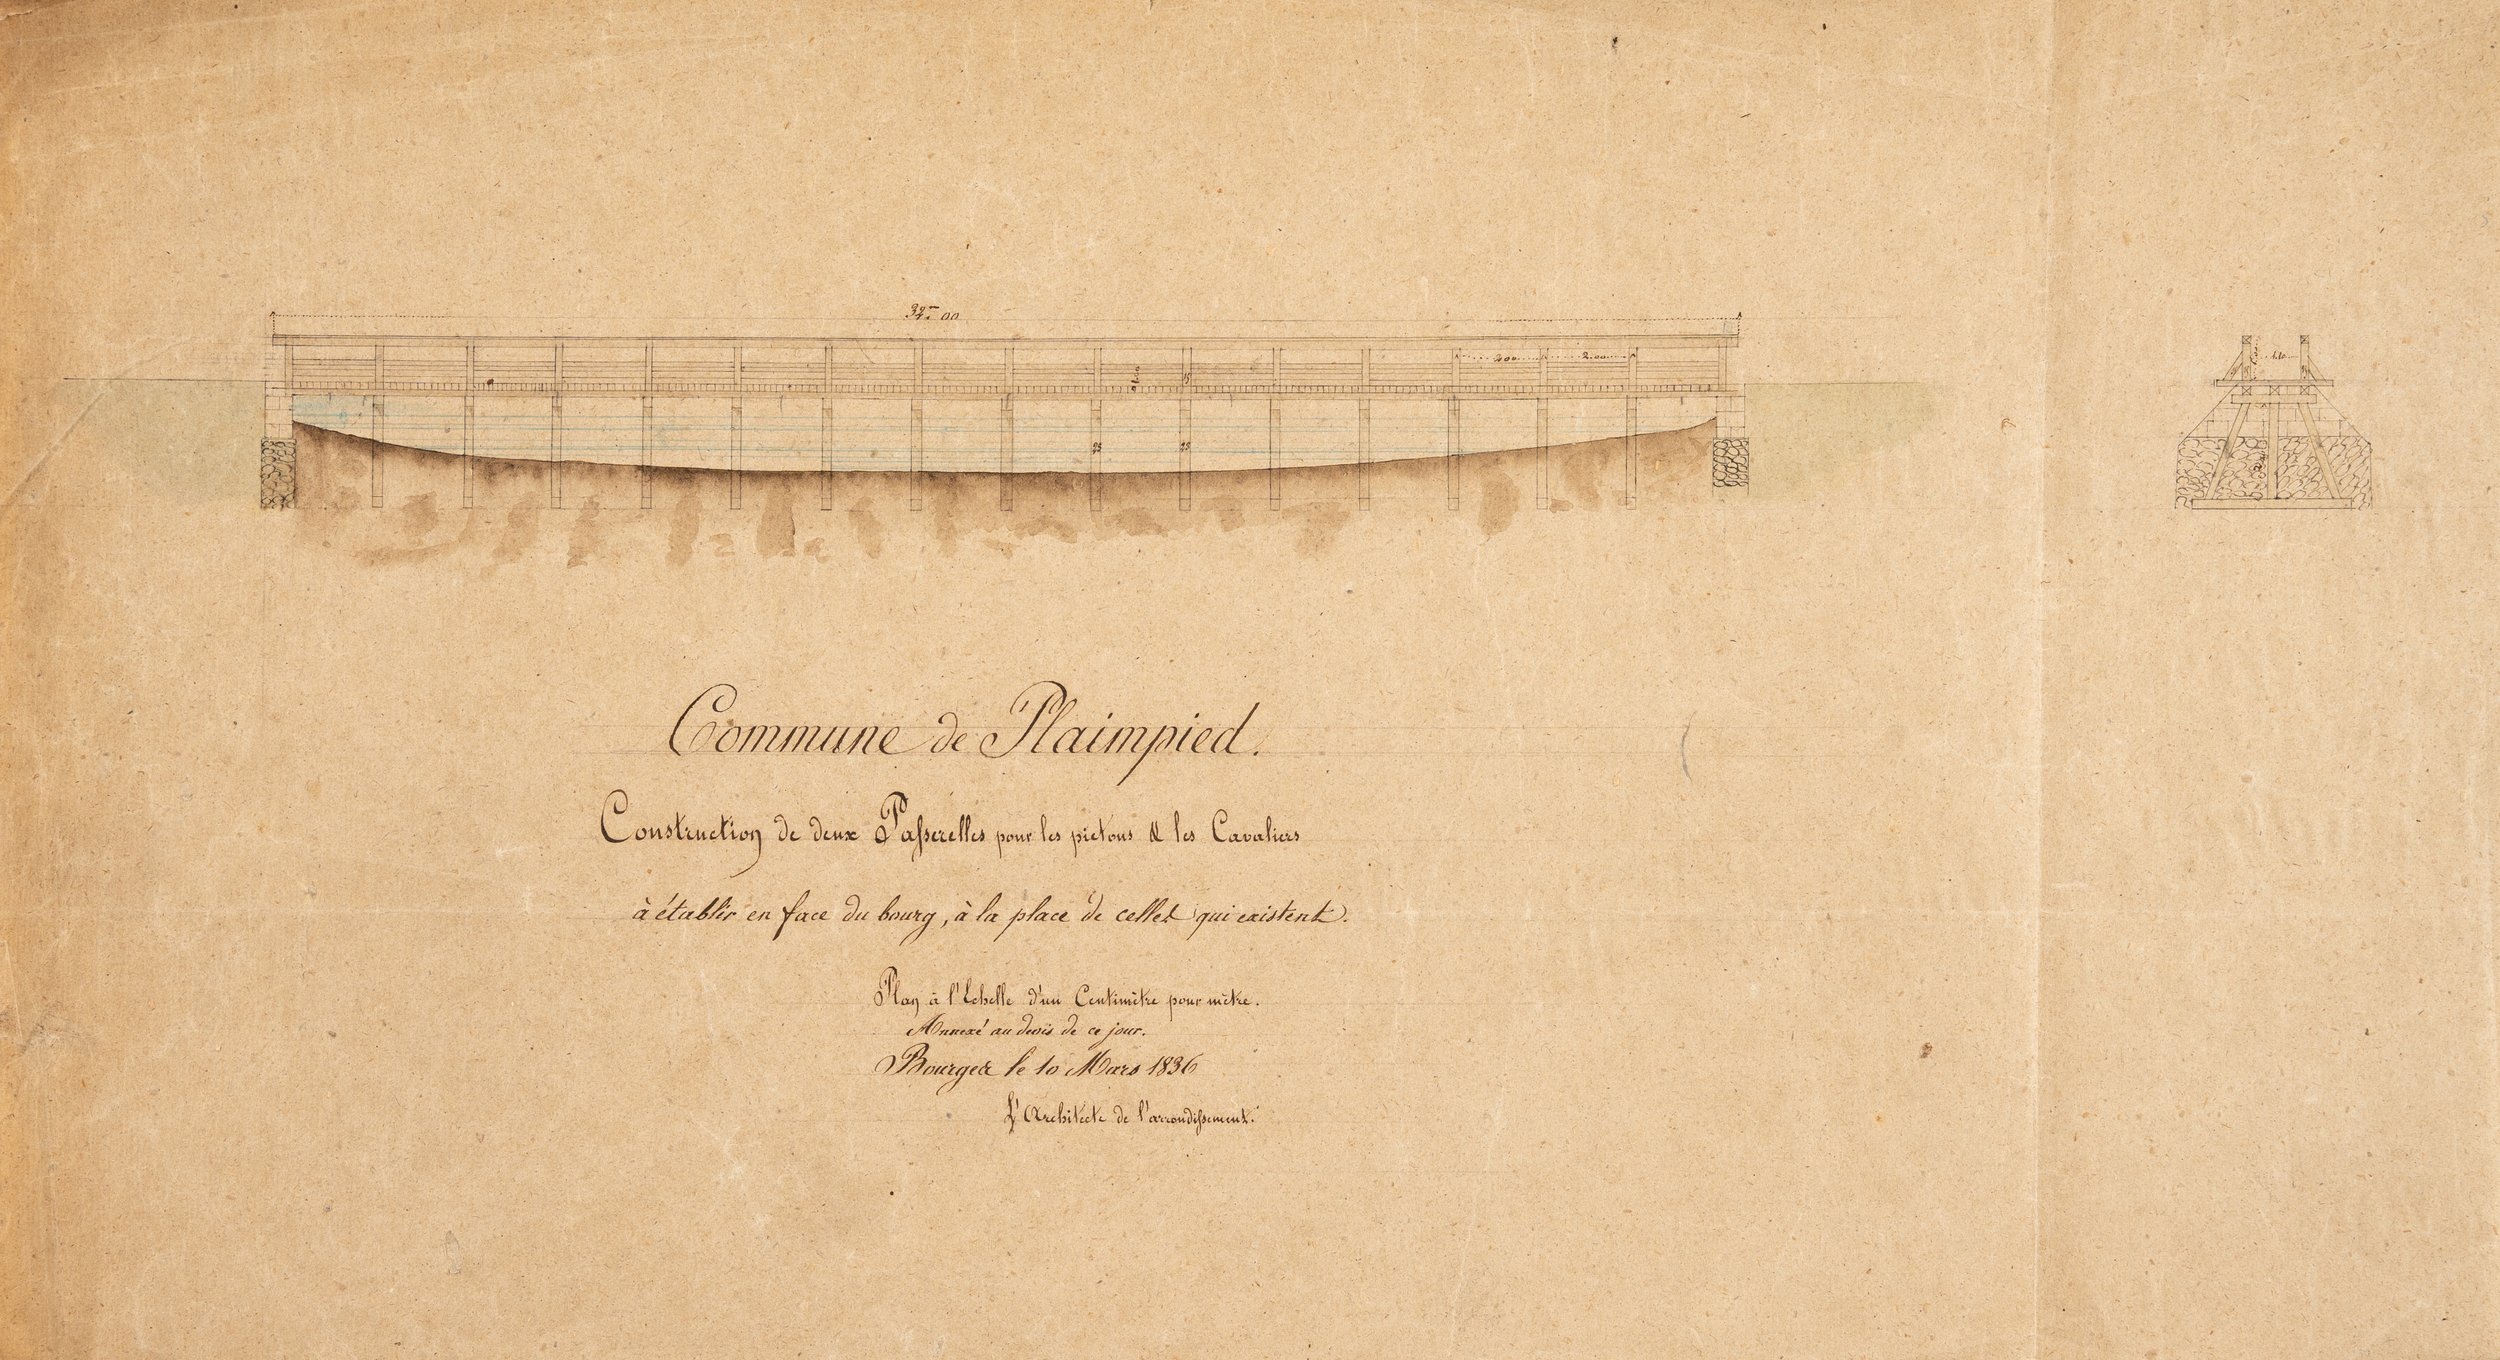 32m. 00
2.00 2.00
15
25 25
Commune de Plaimpied.
Construction de deux Passerelles pour les piétons & les Cavaliers
à établir en face du bourg, à la place de celles qui existent.
Plan à l'Echelle d'un Centimètre pour mètre.
Annexé au devis de ce jour.
Bourges le 10 Mars 1836
L'Architecte de l'arrondissement.